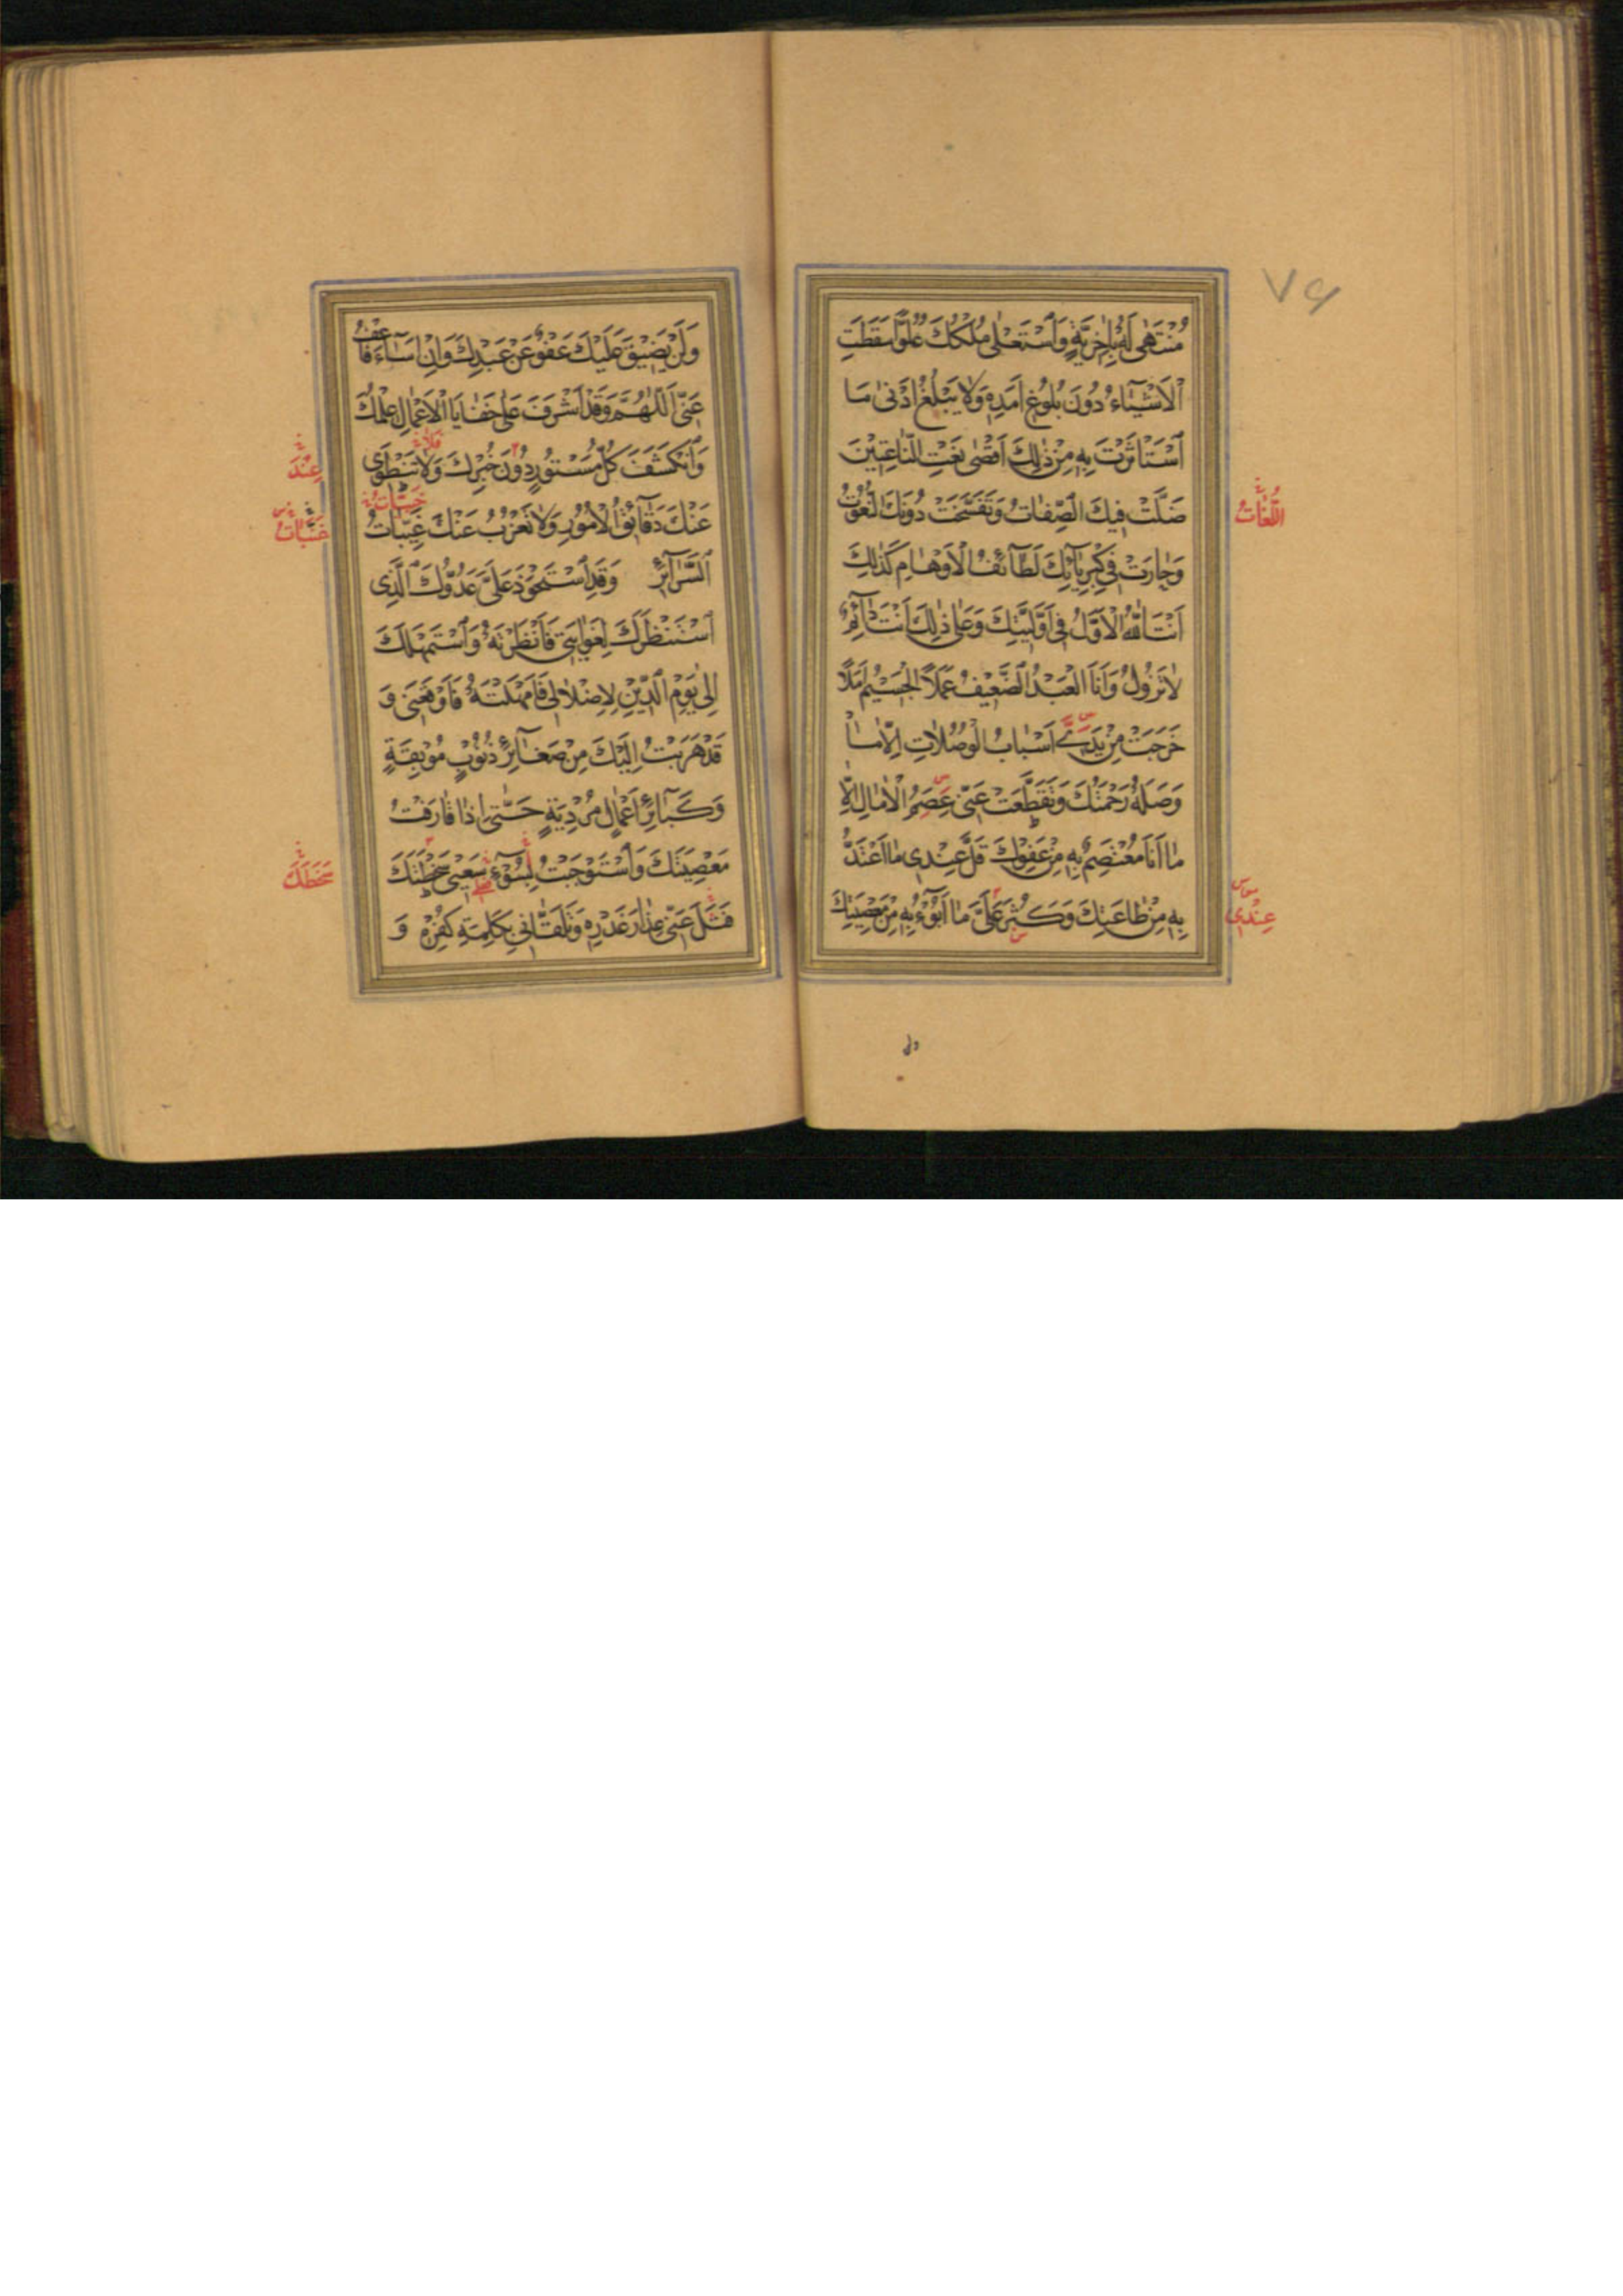 ۷۶
مُنْتَهٰى لَهُ بِاٰخِرِيَّةٍ وَاسْتَعْلٰى مُلْكُكَ عُلُوًّا سَقَطَتِ
الْاَشْيَآءُ دُونَ بُلُوغِ اَمَدِهِ وَلَا يَبْلُغُ اَدْنٰى مَا
اسْتَأْثَرْتَ بِهِ مِنْ ذٰلِكَ اَقْصٰى نَعْتِ النَّاعِتِيْنَ
ضَلَّتْ فِيكَ الصِّفَاتُ وَتَفَسَّخَتْ دُونَكَ النُّعُوتُ
اللُّغَاتُ
وَحَارَتْ فِي كِبْرِيَآئِكَ لَطَآئِفُ الْاَوْهَامِ كَذٰلِكَ
اَنْتَ اللّٰهُ الْاَوَّلُ فِي اَوَّلِيَّتِكَ وَعَلٰى ذٰلِكَ اَنْتَ دَآئِمٌ
لَا تَزُولُ وَاَنَا الْعَبْدُ الضَّعِيْفُ عَمَلًا الْجَسِيْمُ اَمَلًا
خَرَجَتْ مِنْ يَدَيَّ اَسْبَابُ الْوُصُلَاتِ اِلَّا مَا
وَصَلَهُ رَحْمَتُكَ وَتَقَطَّعَتْ عَنِّي عِصَمُ الْاٰمَالِ اِلَّا
مَا اَنَا مُعْتَصِمٌ بِهِ مِنْ عَفْوِكَ قَلَّ عِنْدِي مَا اَعْتَدُّ
بِهِ مِنْ طَاعَتِكَ وَكَثُرَ عَلَيَّ مَا اَبُوْءُ بِهِ مِنْ مَعْصِيَتِكَ
عِنْدِي
وَلَنْ يَضِيْقَ عَلَيْكَ عَفْوٌ عَنْ عَبْدِكَ وَاِنْ اَسَآءَ فَاعْفُ
عَنِّي اَللّٰهُمَّ وَقَدْ اَشْرَفَ عَلٰى خَفَايَا الْاَعْمَالِ عِلْمُكَ
وَانْكَشَفَ كُلُّ مَسْتُورٍ دُونَ خُبْرِكَ وَلَا تَنْطَوِي
فَلَا
عِنْدَ
عَنْكَ دَقَآئِقُ الْاُمُورِ وَلَا تَعْزُبُ عَنْكَ غَيِّبَاتُ
السَّرَآئِرِ وَقَدِ اسْتَحْوَذَ عَلَيَّ عَدُوُّكَ الَّذِي
اسْتَنْظَرَكَ لِغَوَايَتِي فَاَنْظَرْتَهُ وَاسْتَمْهَلَكَ
اِلٰى يَوْمِ الدِّيْنِ لِاِضْلَالِي فَاَمْهَلْتَهُ فَاَوْقَعَنِي وَ
قَدْ هَرَبْتُ اِلَيْكَ مِنْ صَغَآئِرِ ذُنُوْبٍ مُوْبِقَةٍ
وَكَبَآئِرِ اَعْمَالٍ مُرْدِيَةٍ حَتّٰى اِذَا قَارَفْتُ
مَعْصِيَتَكَ وَاسْتَوْجَبْتُ بِسُوْٓءِ سَعْيِي سَخْطَتَكَ
سَخَطَكَ
فَتَلَ عَنِّي عِذَارَ غَدْرِهِ وَتَلَقَّانِي بِكَلِمَةِ كُفْرِهِ وَ